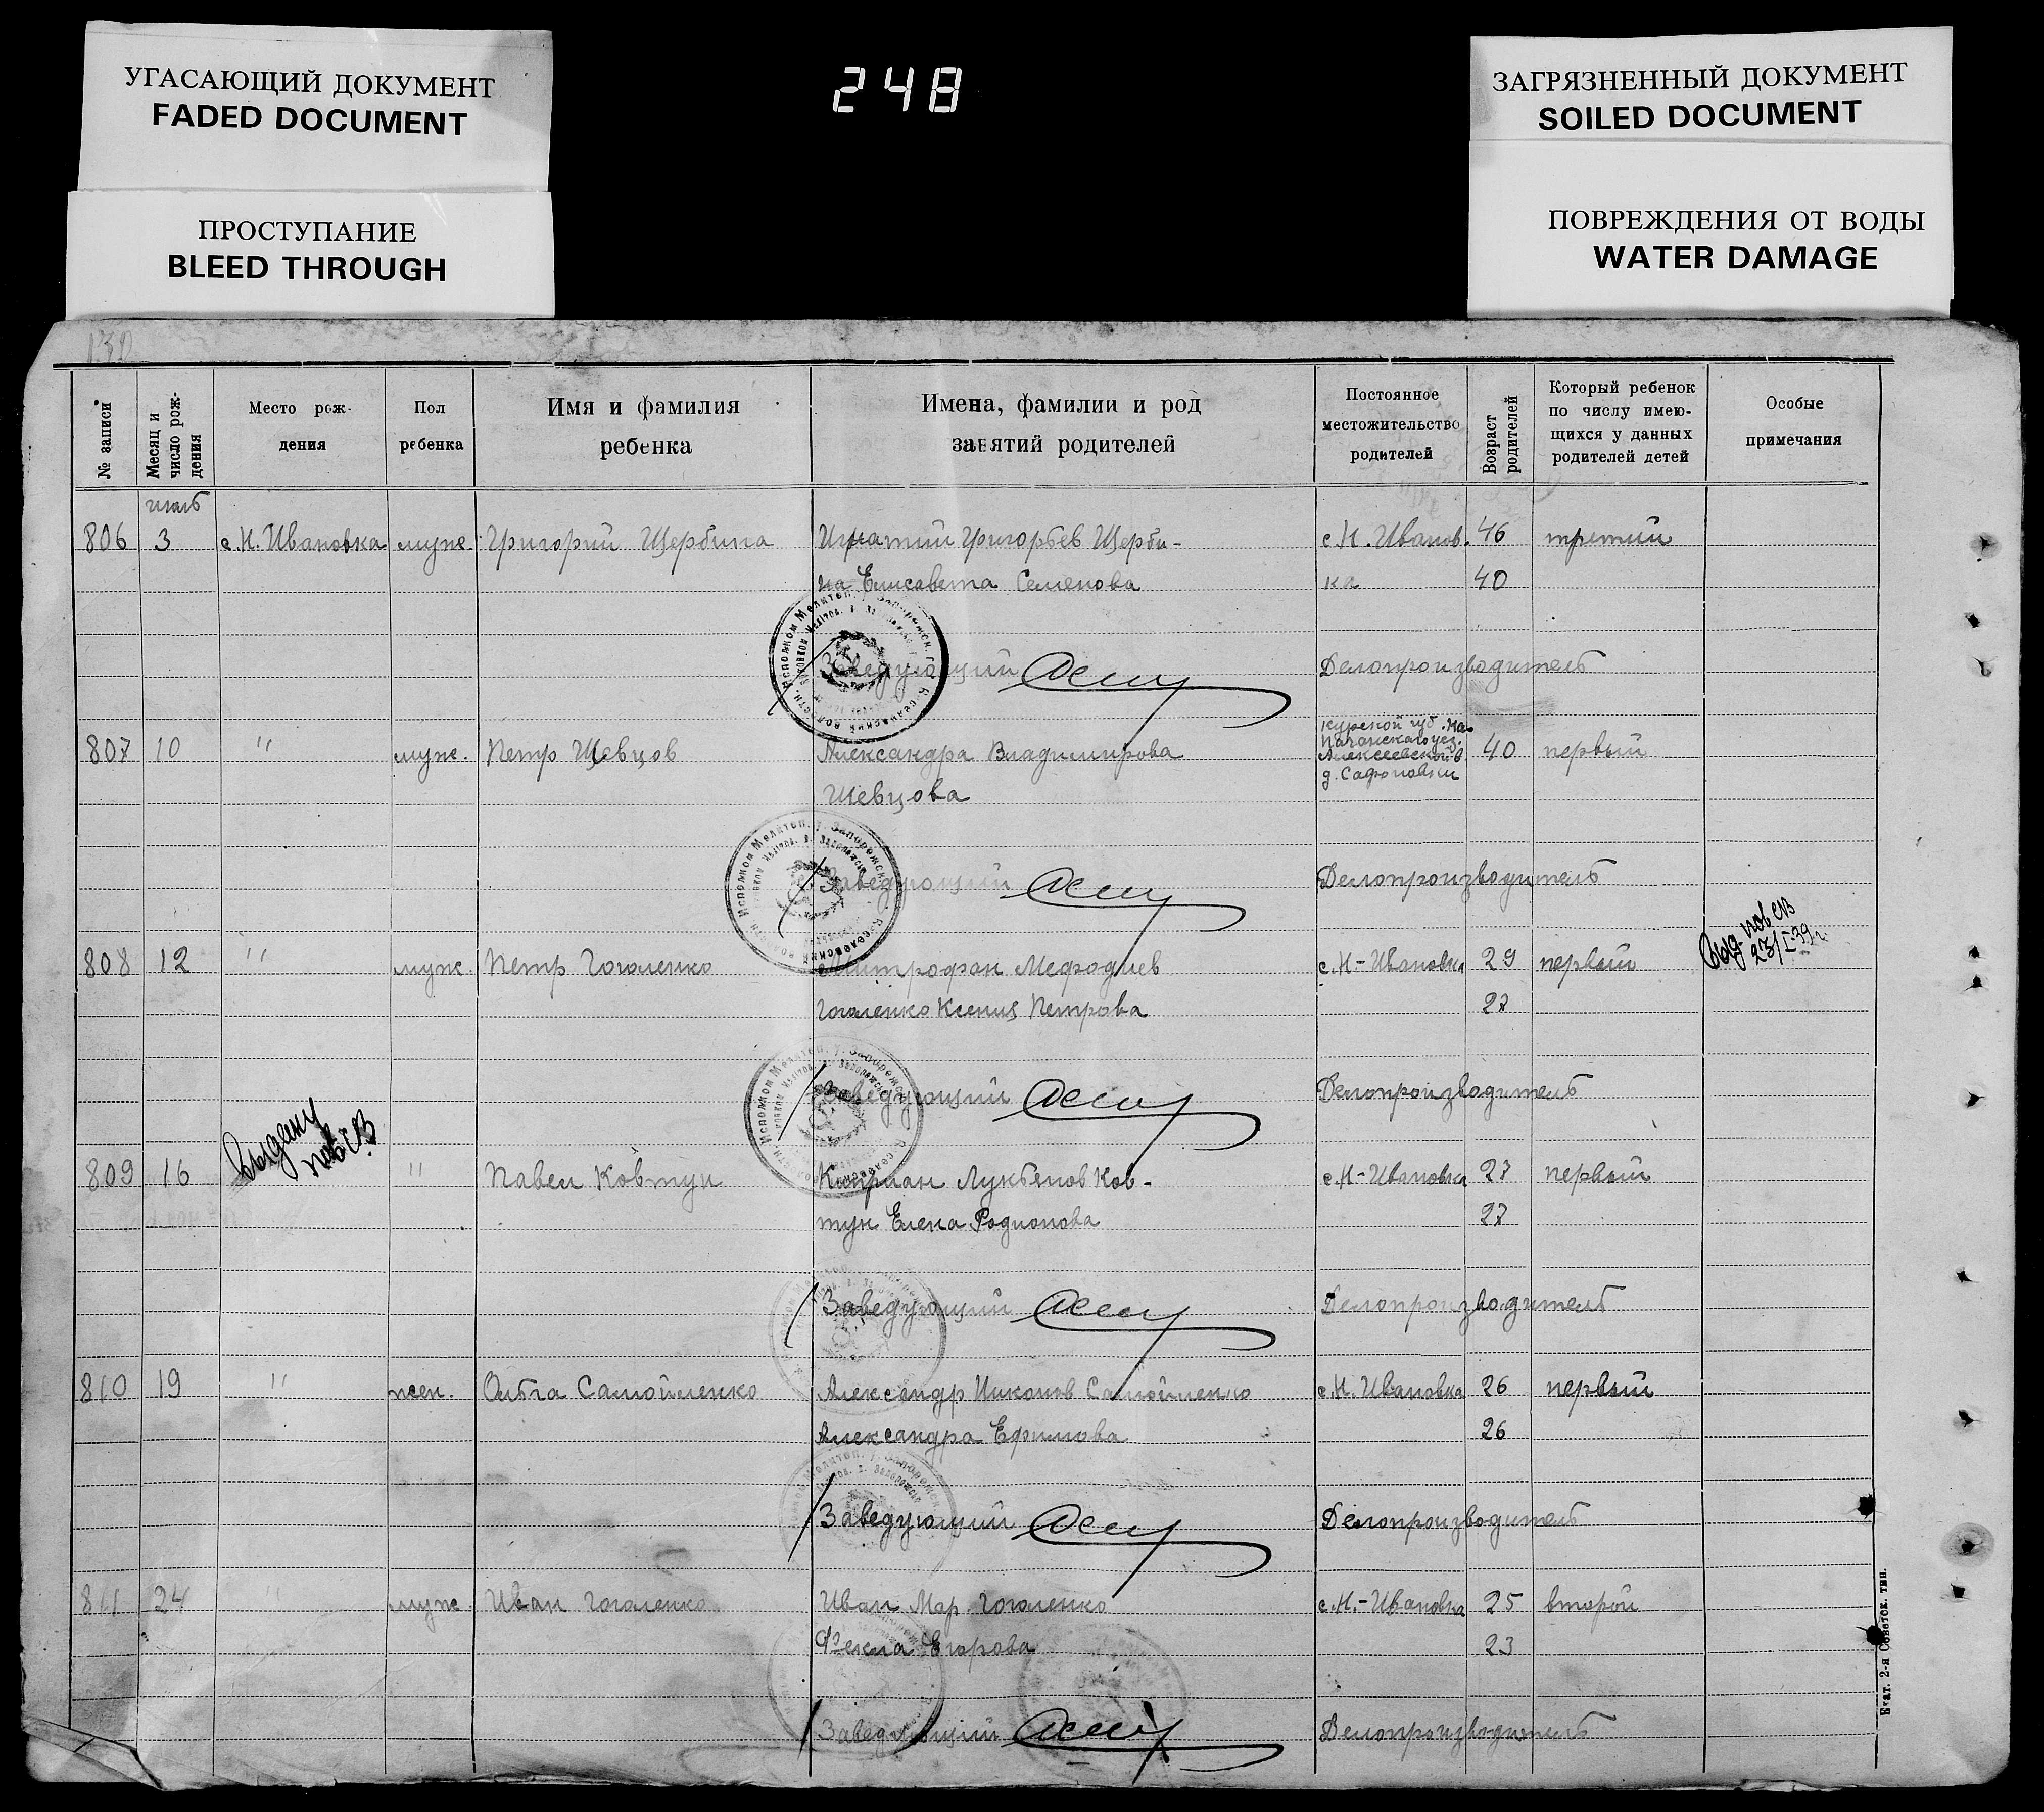 УГАСАЮЩИЙ ДОКУМЕНТ
FADED DOCUMENT
ПРОСТУПАНИЕ
BLEED THROUGH
248
ЗАГРЯЗНЕННЫЙ ДОКУМЕНТ
SOILED DOCUMENT
ПОВРЕЖДЕНИЯ ОТ ВОДЫ
WATER DAMAGE
№ записи
Месяц и число рождения
Место рождения
Пол ребенка
Имя и фамилия ребенка
Имена, фамилии и род занятий родителей
Постоянное местожительство родителей
Возраст родителей
Который ребенок по числу имеющихся у данных родителей детей
Особые примечания
806 3 с.Н.Ивановка муж. Григорий Щербина Игнатий Григорьев Щерби- с Н. Иванов. 46 третий
на Елисавета Семенова ка 40
Заведующий Делопроизводитель
807 10 " муж. Петр Шевцов Александра Владимирова 40 первый
Шевцова
Курской губ.
Алексеевской в.
Заведующий Делопроизводитель
808 12 " муж. Петр Гогаленко Митрофан Мефодиев с.Н-Ивановка 29 первый
Гогаленко Ксения Петрова 27
Заведующий Делопроизводитель
809 16 " Павел Ковтун Киприан Лукьенов Ков- с.Н-Ивановка 27 первый
тун Елена Родионова 27
Заведующий Делопроизводитель
810 19 " жен. Ольга Самойленко Александр Никонов Самойленко с.Н.Ивановка 26 первый
Александра Ефимова 26
Заведующий Делопроизводитель
811 24 " муж. Иван Гогаленко Иван Мар. Гогаленко с.Н.-Ивановка 25 второй
Фекла Егорова 23
Заведующий Делопроизводитель
Екат. 2-я Советск. тип.